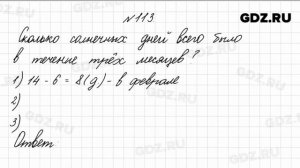 GDZ.RU
№113
Сколько солнечных дней всего было
в течение трёх месяцев?
1) 14 - 6 = 8 (д) - в феврале
2)
3)
Ответ